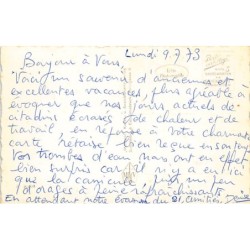 Lundi 9.7.73
Bonjour à Vous,
Voici un souvenir d'anciennes et
excellentes vacances, plus agréable à
évoquer que nos jours actuels de
citadins écrasés de chaleur et de
travail en réponse à votre charmante
carte, bien reçue
Vos trombes d'eau nous ont en effet
bien surpris car il n'y a eu ici
que la canicule, juste un peu
d'orages à peine rafraichissants.
En attendant notre évasion du 21, amitiés